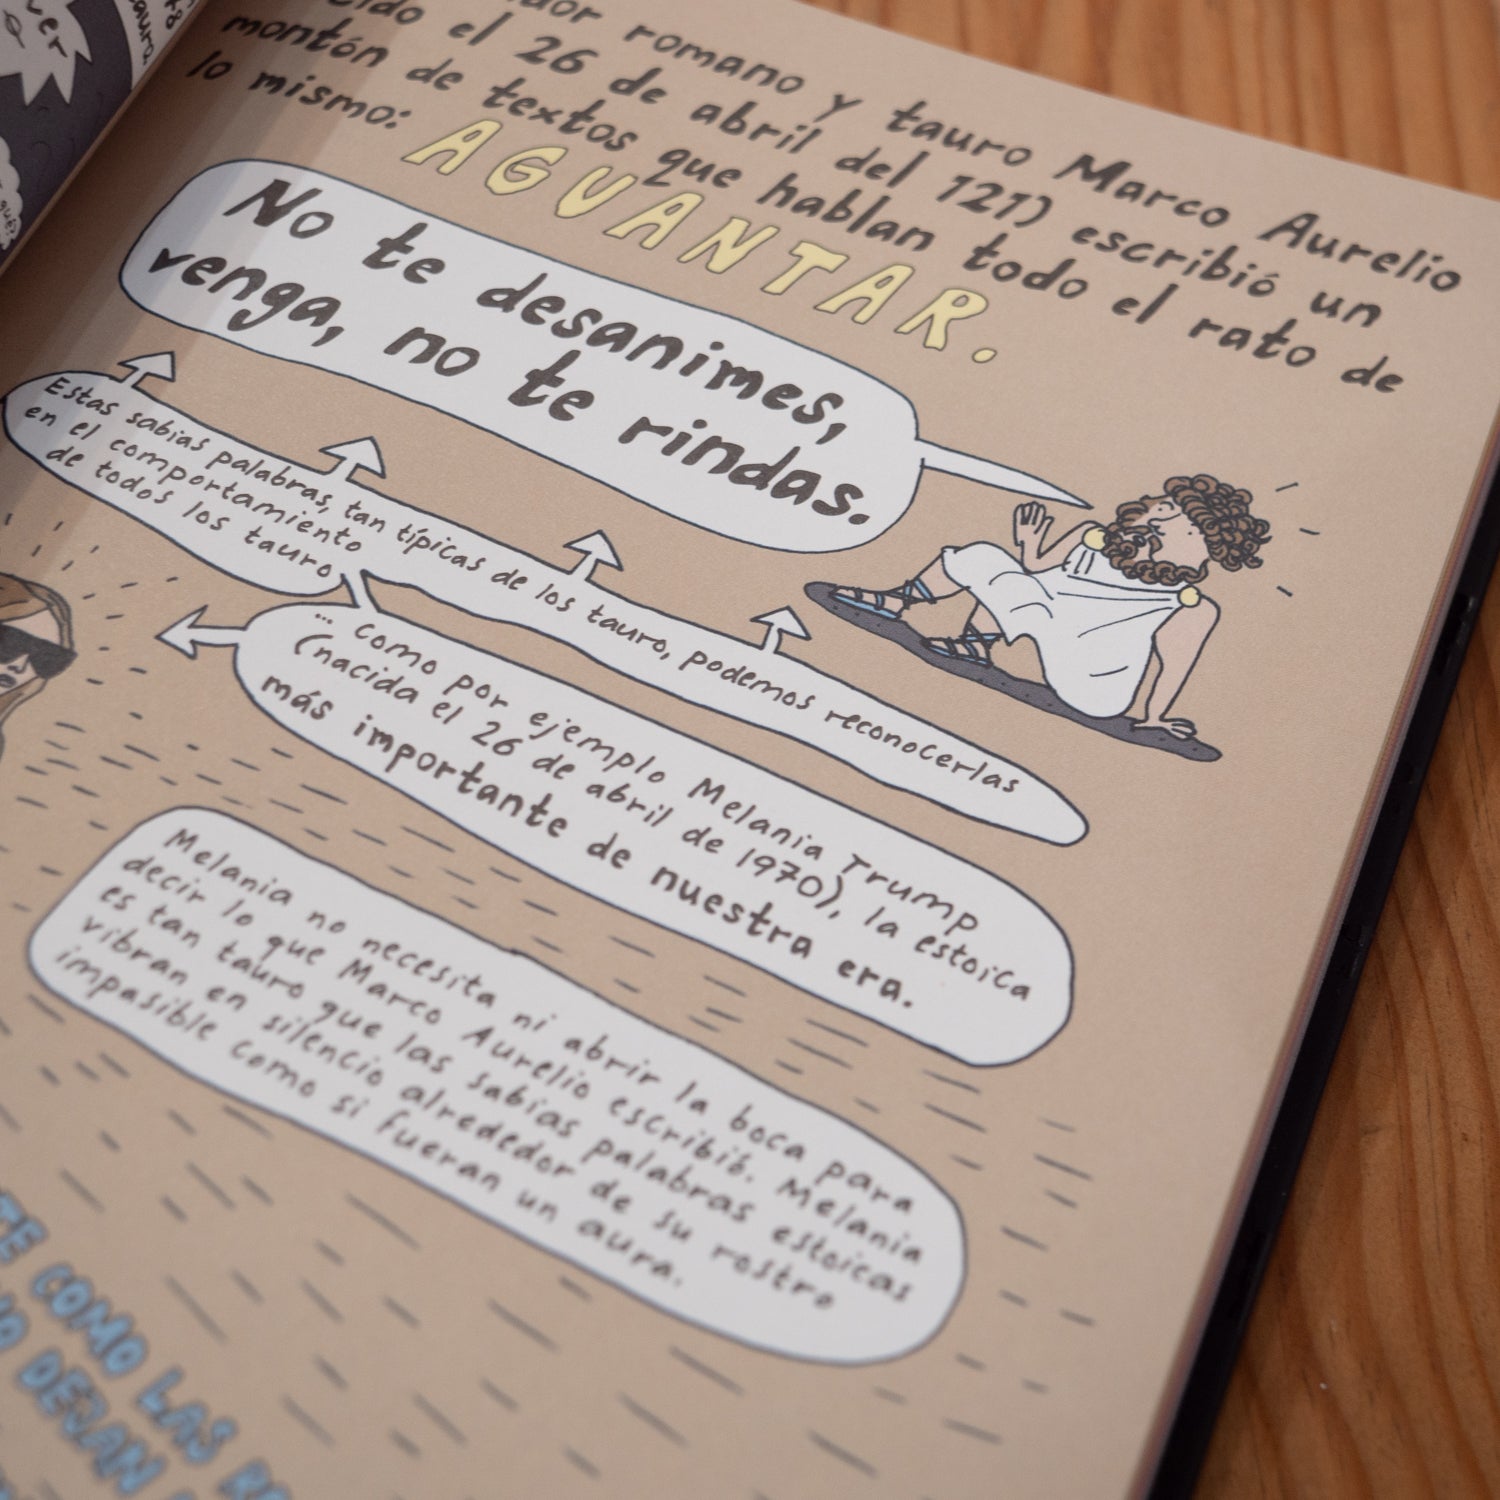 romano y tauro Marco Aurelio
el 26 de abril del 121) escribió un
montón de textos que hablan todo el rato de
lo mismo: AGUANTAR.
No te desanimes,
venga, no te rindas.
Estas sabias palabras, tan típicas de los tauro, podemos reconocerlas
en el comportamiento
de todos los tauro
... como por ejemplo Melania Trump
(nacida el 26 de abril de 1970), la estoica
más importante de nuestra era.
Melania no necesita ni abrir la boca para
decir lo que Marco Aurelio escribió. Melania
es tan tauro que las sabias palabras estoicas
vibran en silencio alrededor de su rostro
impasible como si fueran un aura.
COMO LAS
DEJAN